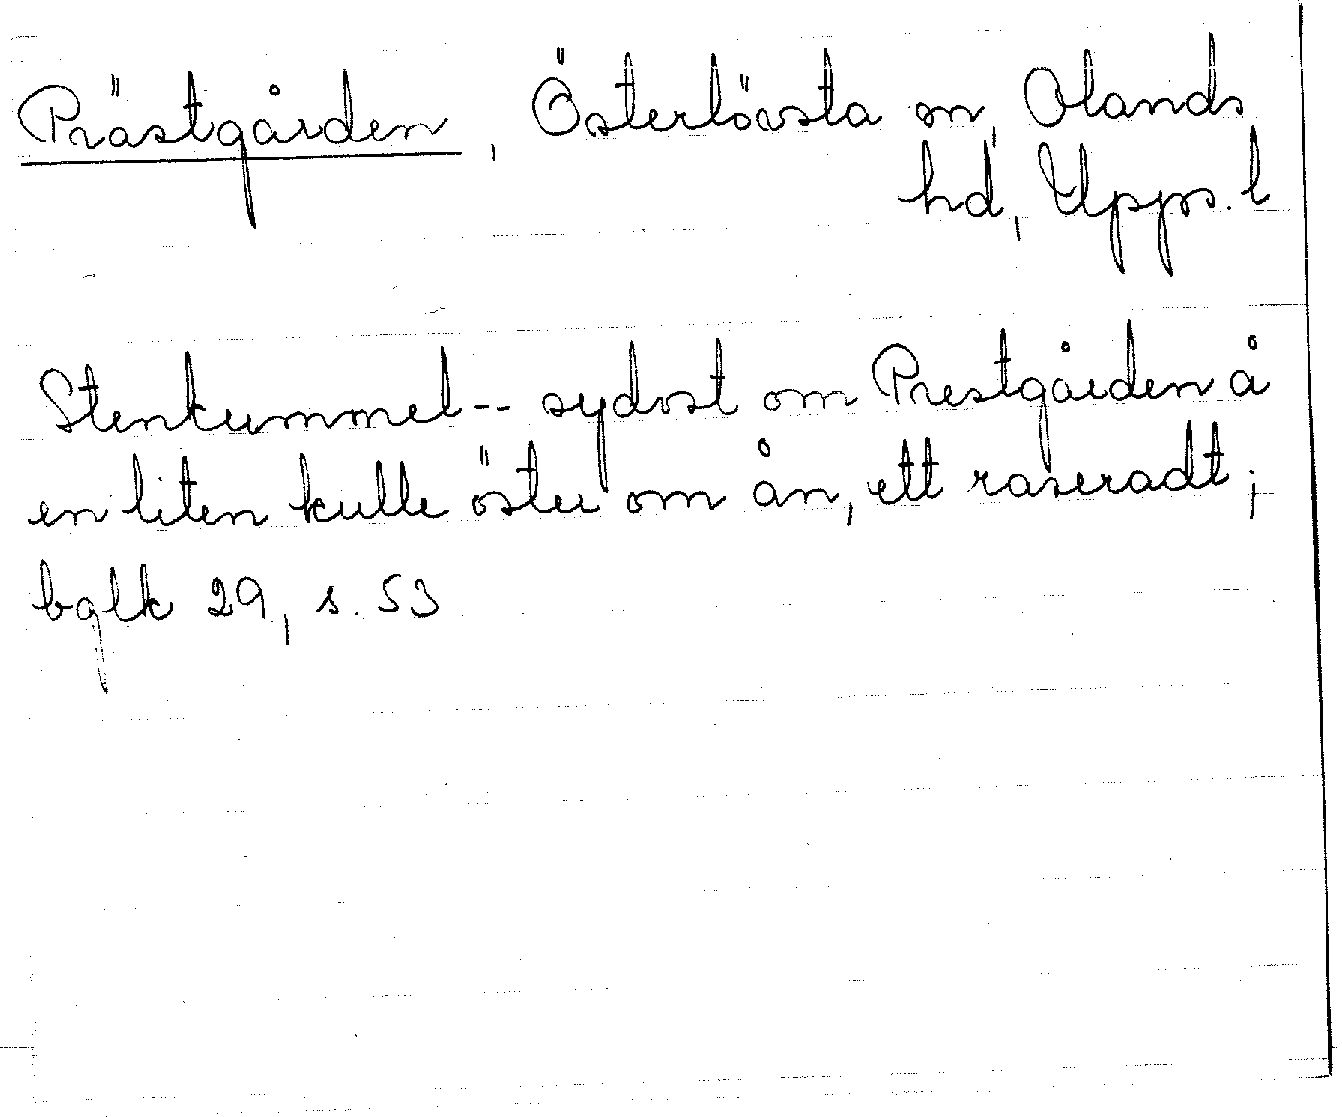 Prästgården, Österlövsta sn, Olands
hd, Upps. l
Stenkummel -- sydost om Prestgården å
en liten kulle öster om ån, ett raseradt;
bglk 29, s. 53